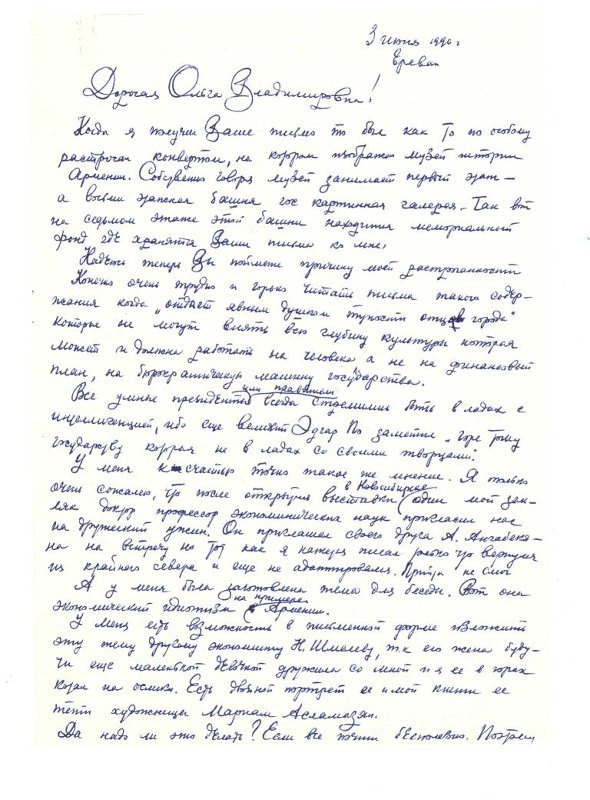 3 июня 1990 г
Ереван
Дорогая Ольга Владимировна!
Когда я получил Ваше письмо то был как то по особому
растроган конвертом, на котором изображен музей истории
Армении. Собственно говоря музей занимает первый этаж –
а восьми этажная башня гос картинная галерея. Так вот
на седьмом этаже этой башни находится мемориальный
фонд где хранятся Ваши письма ко мне.
Надеюсь теперь Вы поймете причину моей растроганности
Конечно очень трудно и горько читать письма такого содер-
жания когда „отдает явным душком тупости отцов города"
которые не могут внять всю глубину культуры которая
может и должна работать на человека а не на финансовый
план, на бюрократическую машину государства.
или правители
Все умные президенты всегда стремились быть в ладах с
интеллигенцией, ибо еще великий Эдгар По заметил „горе тому
государству которая не в ладах со своими творцами."
У меня к счастью точно такое же мнение. Я только
в Новосибирске
очень сожалею, что после открытия выставки один мой зем-
ляк доктор профессор экономических наук пригласил нас
на дружеский ужин. Он приглашал своего друга А. Аганбекя-
на на встречу но тот как я наверх писал только что вернулся
из крайнего севера и еще не адаптировался. Прийти не смог
А у меня была заготовлена тема для беседы. Вот она
на примере
экономический идиотизм Армении.
У меня есть возможность в письменной форме изложить
эту тему другому экономисту Н. Шмелеву, т.к его жена буду-
чи еще маленькой девочкой дружила со мной и я ее в горах
катал на ослике. Есть двойной портрет ее и мой кисти ее
тети художницы Мариам Асламазян.
Да надо ли это делать? Если все почти бесполезно. Поэтому